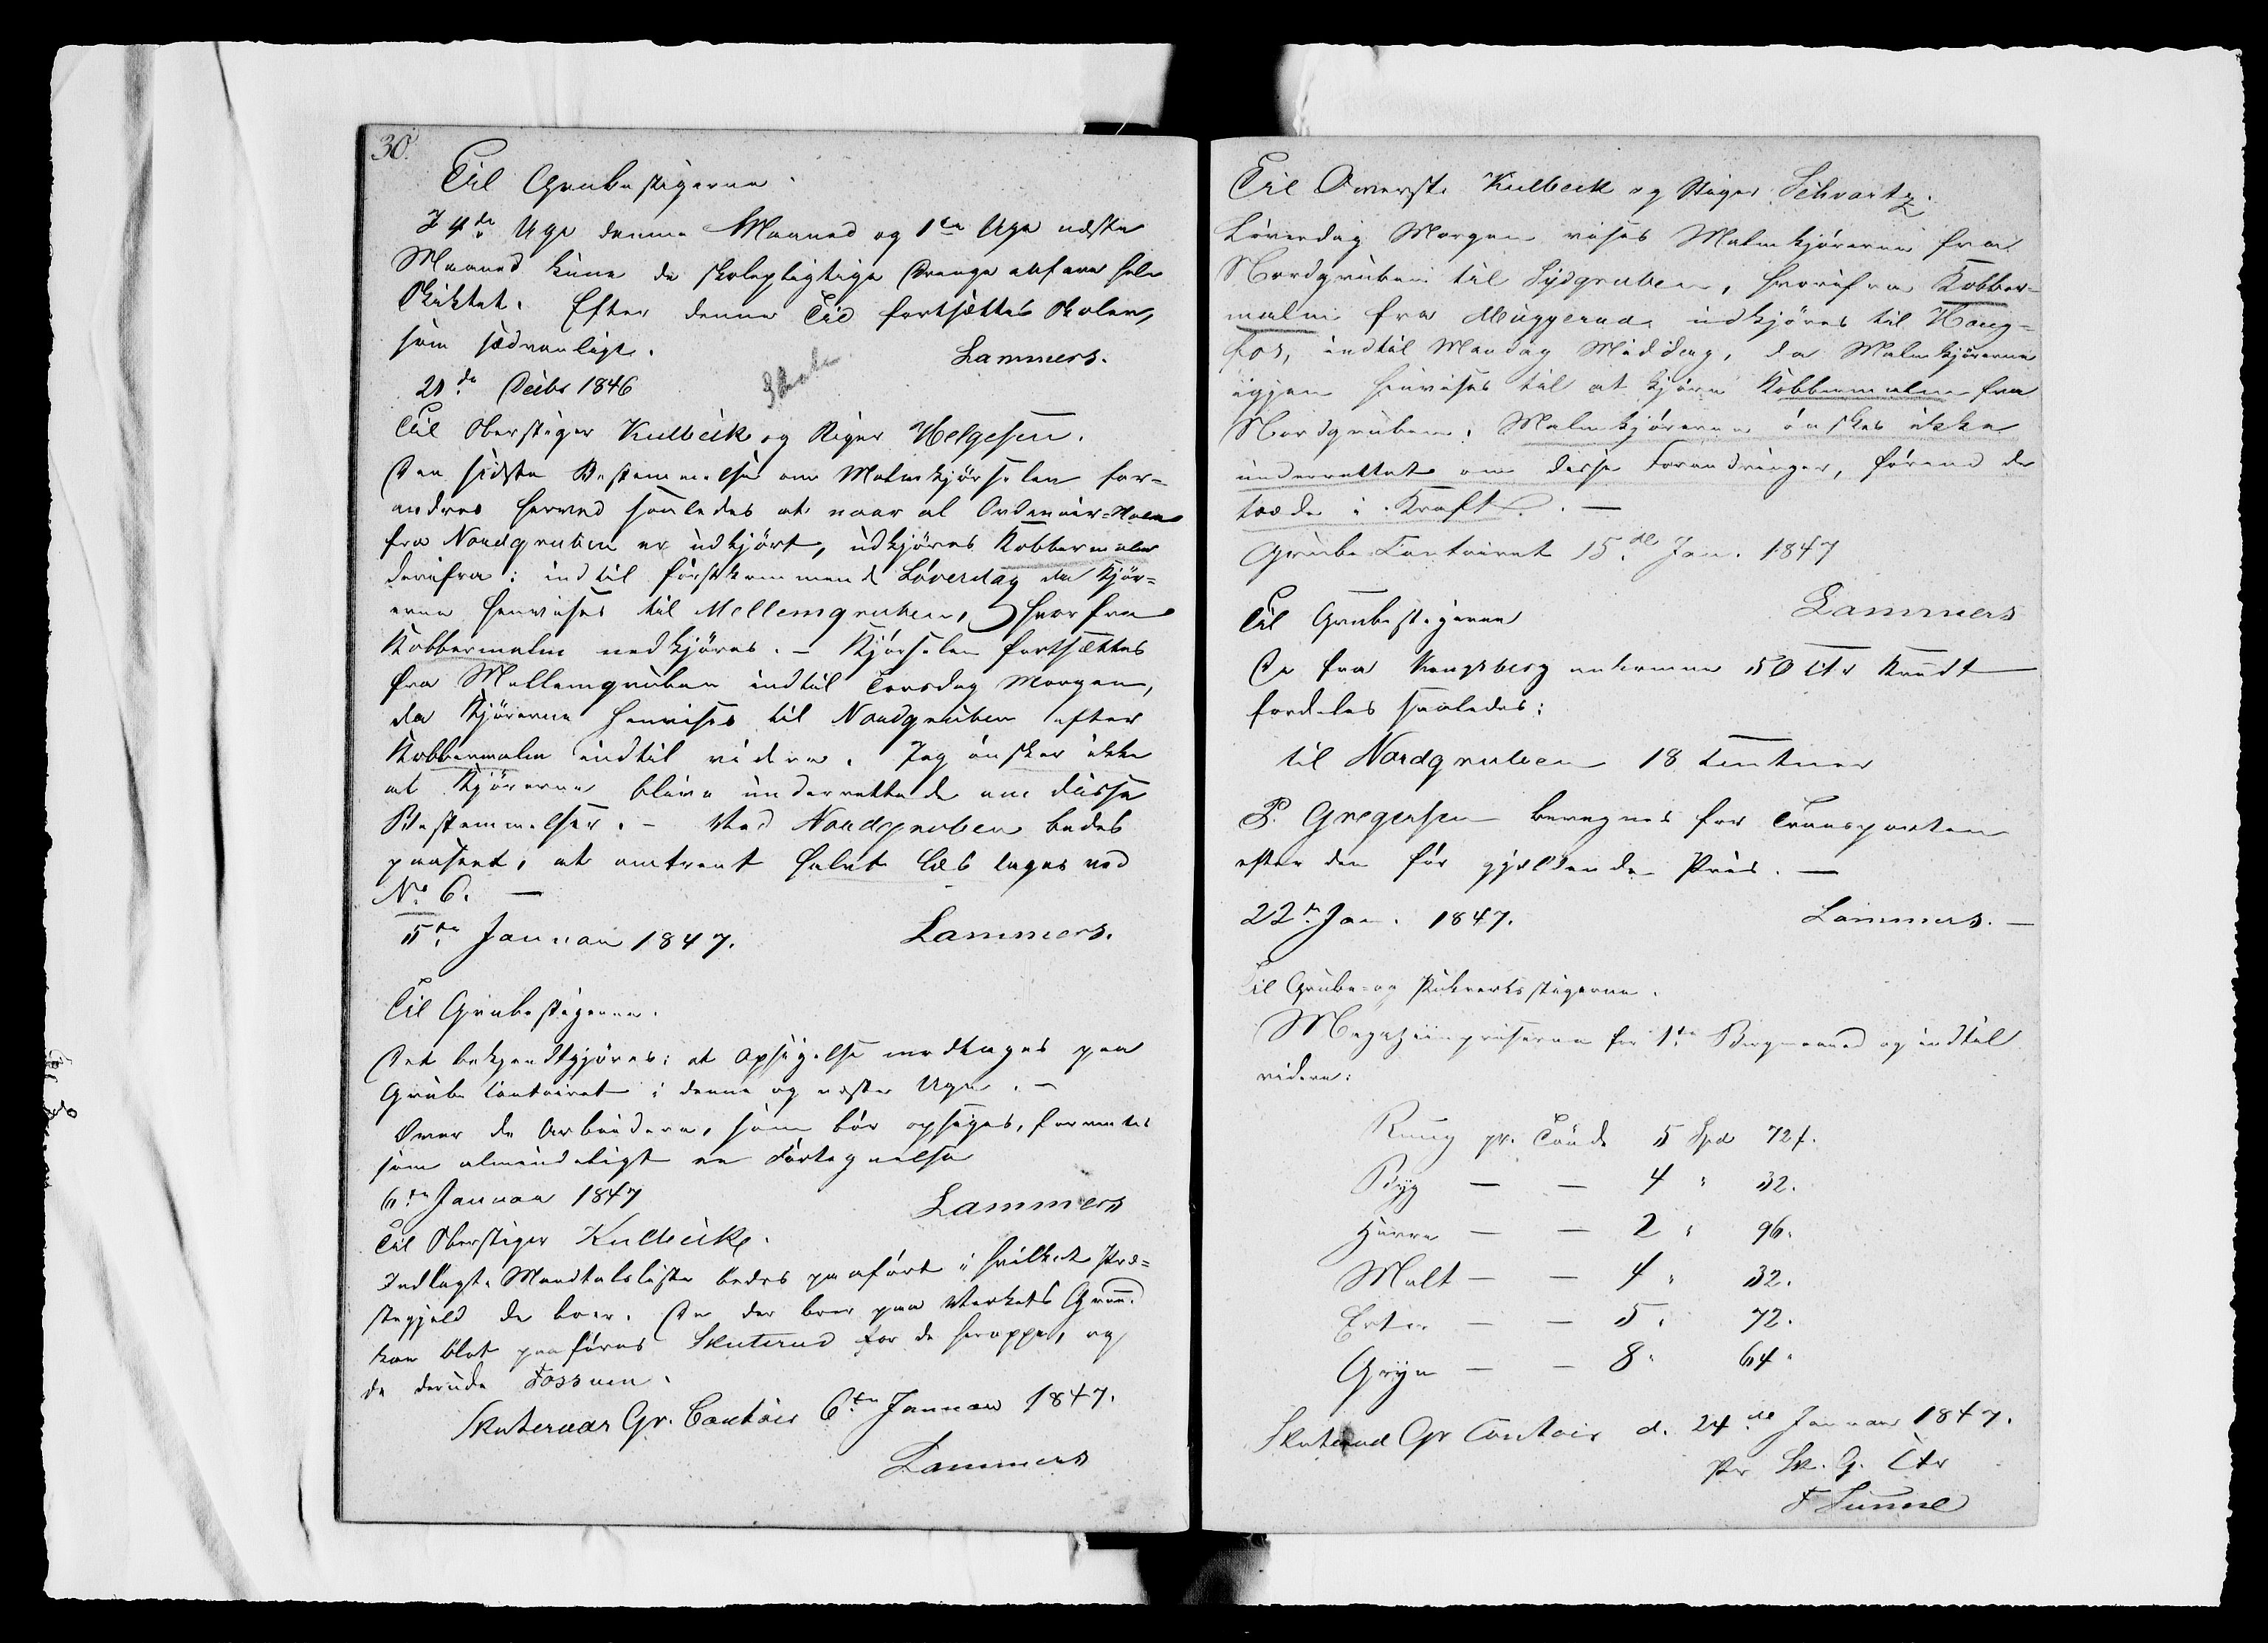 30.
Til Grubestigerne.
I 4de Uge denne Maaned og 1ste Uge næste
Maaned kunne de skolepligtige Drenge anfare hele
Skiktet. Efter denne Tid fortsættes Skolen,
som sædvanligt.
Lammers.
21de Decbr 1846
Skole
Til Oberstiger Kulbeck og Stiger Helgesen.
Den sidste Bestemmelse om Malmkjørselen for-
andres herved saaledes at naar al Ordinair-Malm
fra Nordgruben er udkjørt, udkjøres Kobbermalm
derifra: indtil förstkommende Löverdag da Kjør-
erne henvises til Mellemgruben, hvorfra
Kobbermalm nedkjøres. – Kjørselen fortsættes
fra Mellemgruben indtil Torsdag Morgen,
da Kjørerne henvises til Nordgruben efter
Kobbermalm indtil videre. Jeg ønsker ikke
at Kjørerne blive underrettede om disse
Bestemmelser. – Ved Nordgruben bedes
paaseet, at omtrent halvt Læs tages ved
No 6. —
5te Januar 1847.
Lammers.
Til Grubestigerne.
Det bekjendtgjøres: at Opsigelse modtages paa
Grube Contoiret i denne og næste Uge. –
Over de Arbeidere, som bör opsiges, forventes
som almindeligt en Fortegnelse
6te Januar 1847
Lammers
Til Oberstiger Kulbeck.
Indlagte Mandtalsliste bedes paafört i hvilket Præ-
stegjeld de boer. De der boer paa Verkets Grund
kan blot paaføres Skuterud for de heroppe, og
de derude Fossum.
Skuterud Gr. Contoir 6te Januar 1847.
Lammers
Til Overst. Kulbeck og Stiger Schvartz.
Löverdag Morgen vises Malmkjørerne fra
Nordgruben til Sydgruben, hvorifra Kobber-
malm fra Muggerud udkjøres til Haug-
fos, indtil Mandag Middag, da Malmkjørerne
igjen henvises til at kjøre Kobbermalm fra
Nordgruben. Malmkjørerne ønskes ikke
underrettet om disse Forandringer, førend de
træde i Kraft. —
Grube Contoiret 15de Jan. 1847
Lammers
Til Grubestigerne
De fra Kongsberg ankomne 50 Ctr Krudt
fordeles saaledes:
til Nordgruben 18 Centner
P. Gregersen beregnes for Transporten
efter den før gjældende Priis. —
22de Jan. 1847.
Lammers. —
Til Grube- og Pukverksstigerne.
Magaziinpriserne for 1ste Bergmaaned og indtil
videre:
Ruug pr. Tønde 5 Spd 72 s.
Byg — — 4 " 32.
Havre — — 2 " 96.
Malt — — 4 " 32.
Erter — — 5 " 72.
Gryn — — 8 " 64.
Skuterud Gr Contoir d. 24de Januar 1847.
Pr Sk. G. Ctr